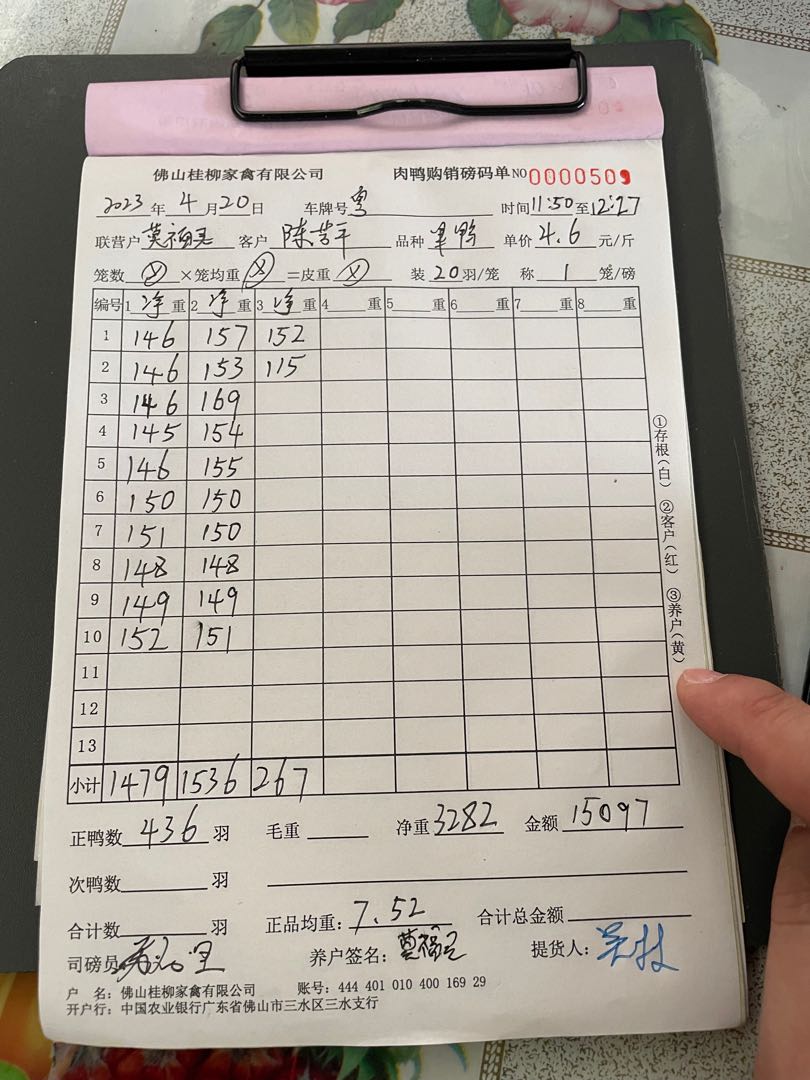 佛山桂柳家禽有限公司 肉鸭购销磅码单 NO 0000509
2023 年 4 月 20 日 车牌号 粤 时间 11:50 至 12:27
联营户 莫福 客户 陈 品种 鸭 单价 4.6 元/斤
笼数 × 笼均重 = 皮重 装 20 羽/笼 称 1 笼/磅
编号 1 净 重 2 净 重 3 净 重 4 重 5 重 6 重 7 重 8 重
1 146 157 152
2 146 153 115
3 146 169
4 145 154
5 146 155
6 150 150
7 151 150
8 148 148
9 149 149
10 152 151
11
12
13
小计 1479 1536 267
正鸭数 436 羽 毛重 净重 3282 金额 15097
次鸭数 羽
合计数 羽 正品均重: 7.52 合计总金额
司磅员 养户签名: 莫福 提货人:
户 名: 佛山桂柳家禽有限公司 账号: 444 401 010 400 169 29
开户行: 中国农业银行广东省佛山市三水区三水支行
①存根(白) ②客户(红) ③养户(黄)